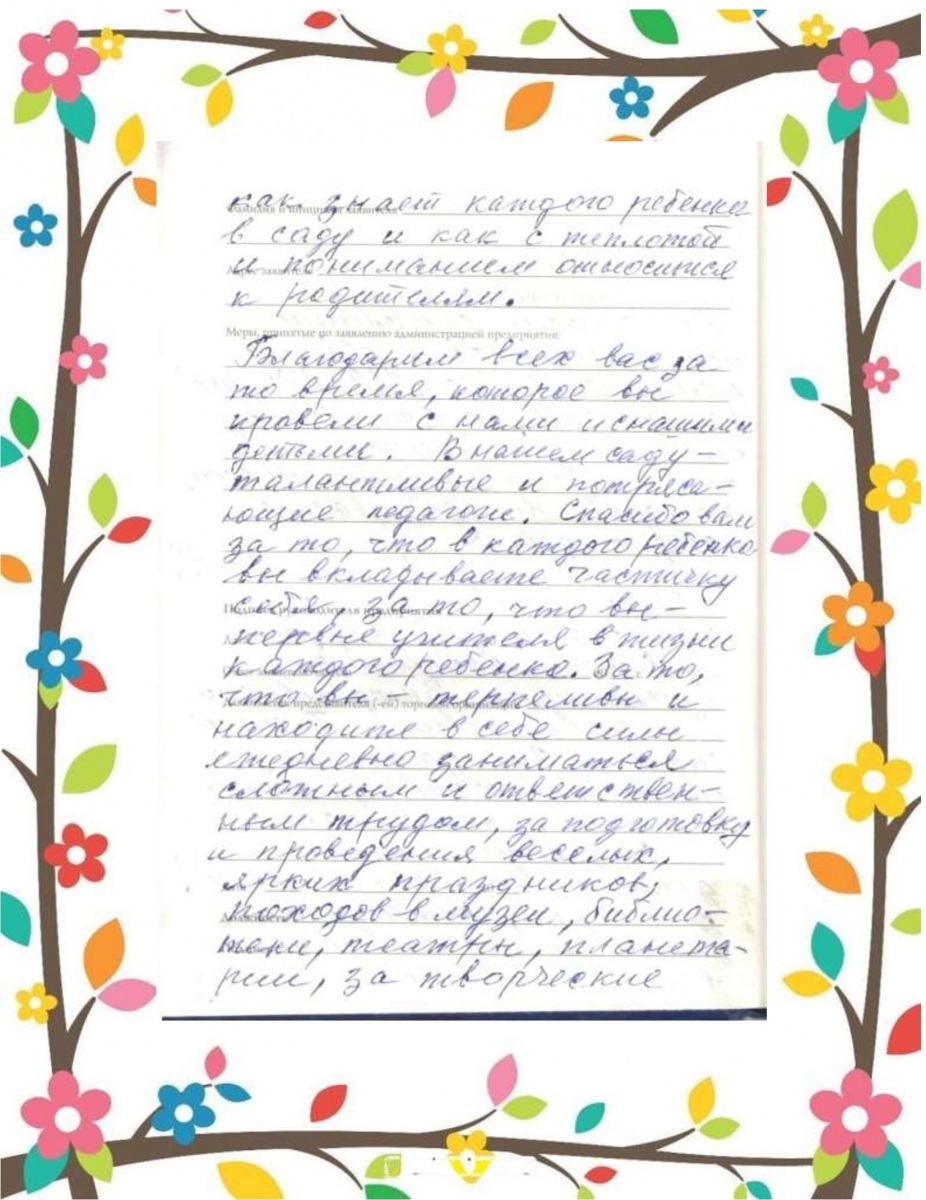 как знает каждого ребенка
Фамилия и инициалы заявителя
в саду и как с теплотой
и пониманием относится
к родителям.
Меры, принятые по заявлению администрацией предприятия:
Благодарим всех вас за
то время, которое вы
провели с нами и с нашими
детьми. В нашем саду –
талантливые и потряса-
ющие педагоги. Спасибо вам
за то, что в каждого ребенка
вы вкладываете частичку
себя, за то, что вы –
Подпись руководителя предприятия
первые учителя в жизни
каждого ребенка. За то,
что вы – терпеливы и
представителя (-ей) торговой
находите в себе силы
ежедневно заниматься
сложным и ответствен-
ным трудом, за подготовку
и проведения веселых,
ярких праздников,
походов в музеи, библио-
теки, театры, планета-
рии, за творческие